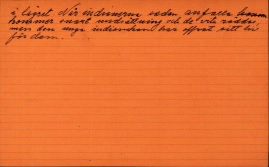 i lägret När indianerna sedan anfaller kommer
snart undsättning och de vita räddas,
men den unga indianskan har offrat sitt liv
för dem.